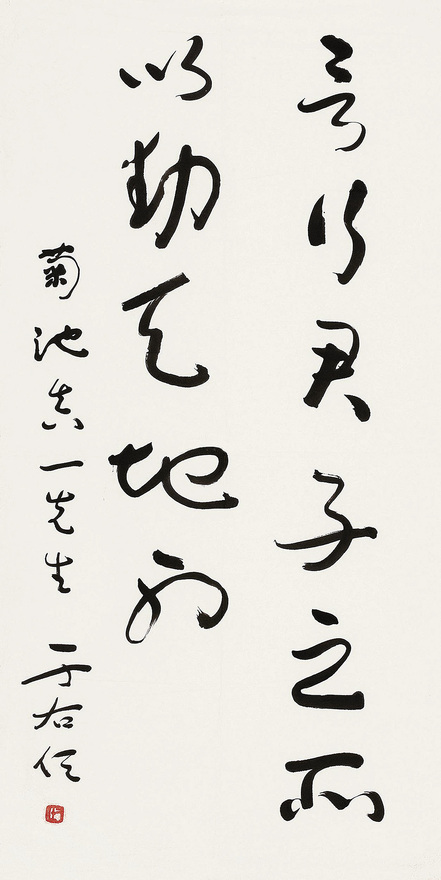 言行君子之所
以動天地也
菊池真一先生 于右任